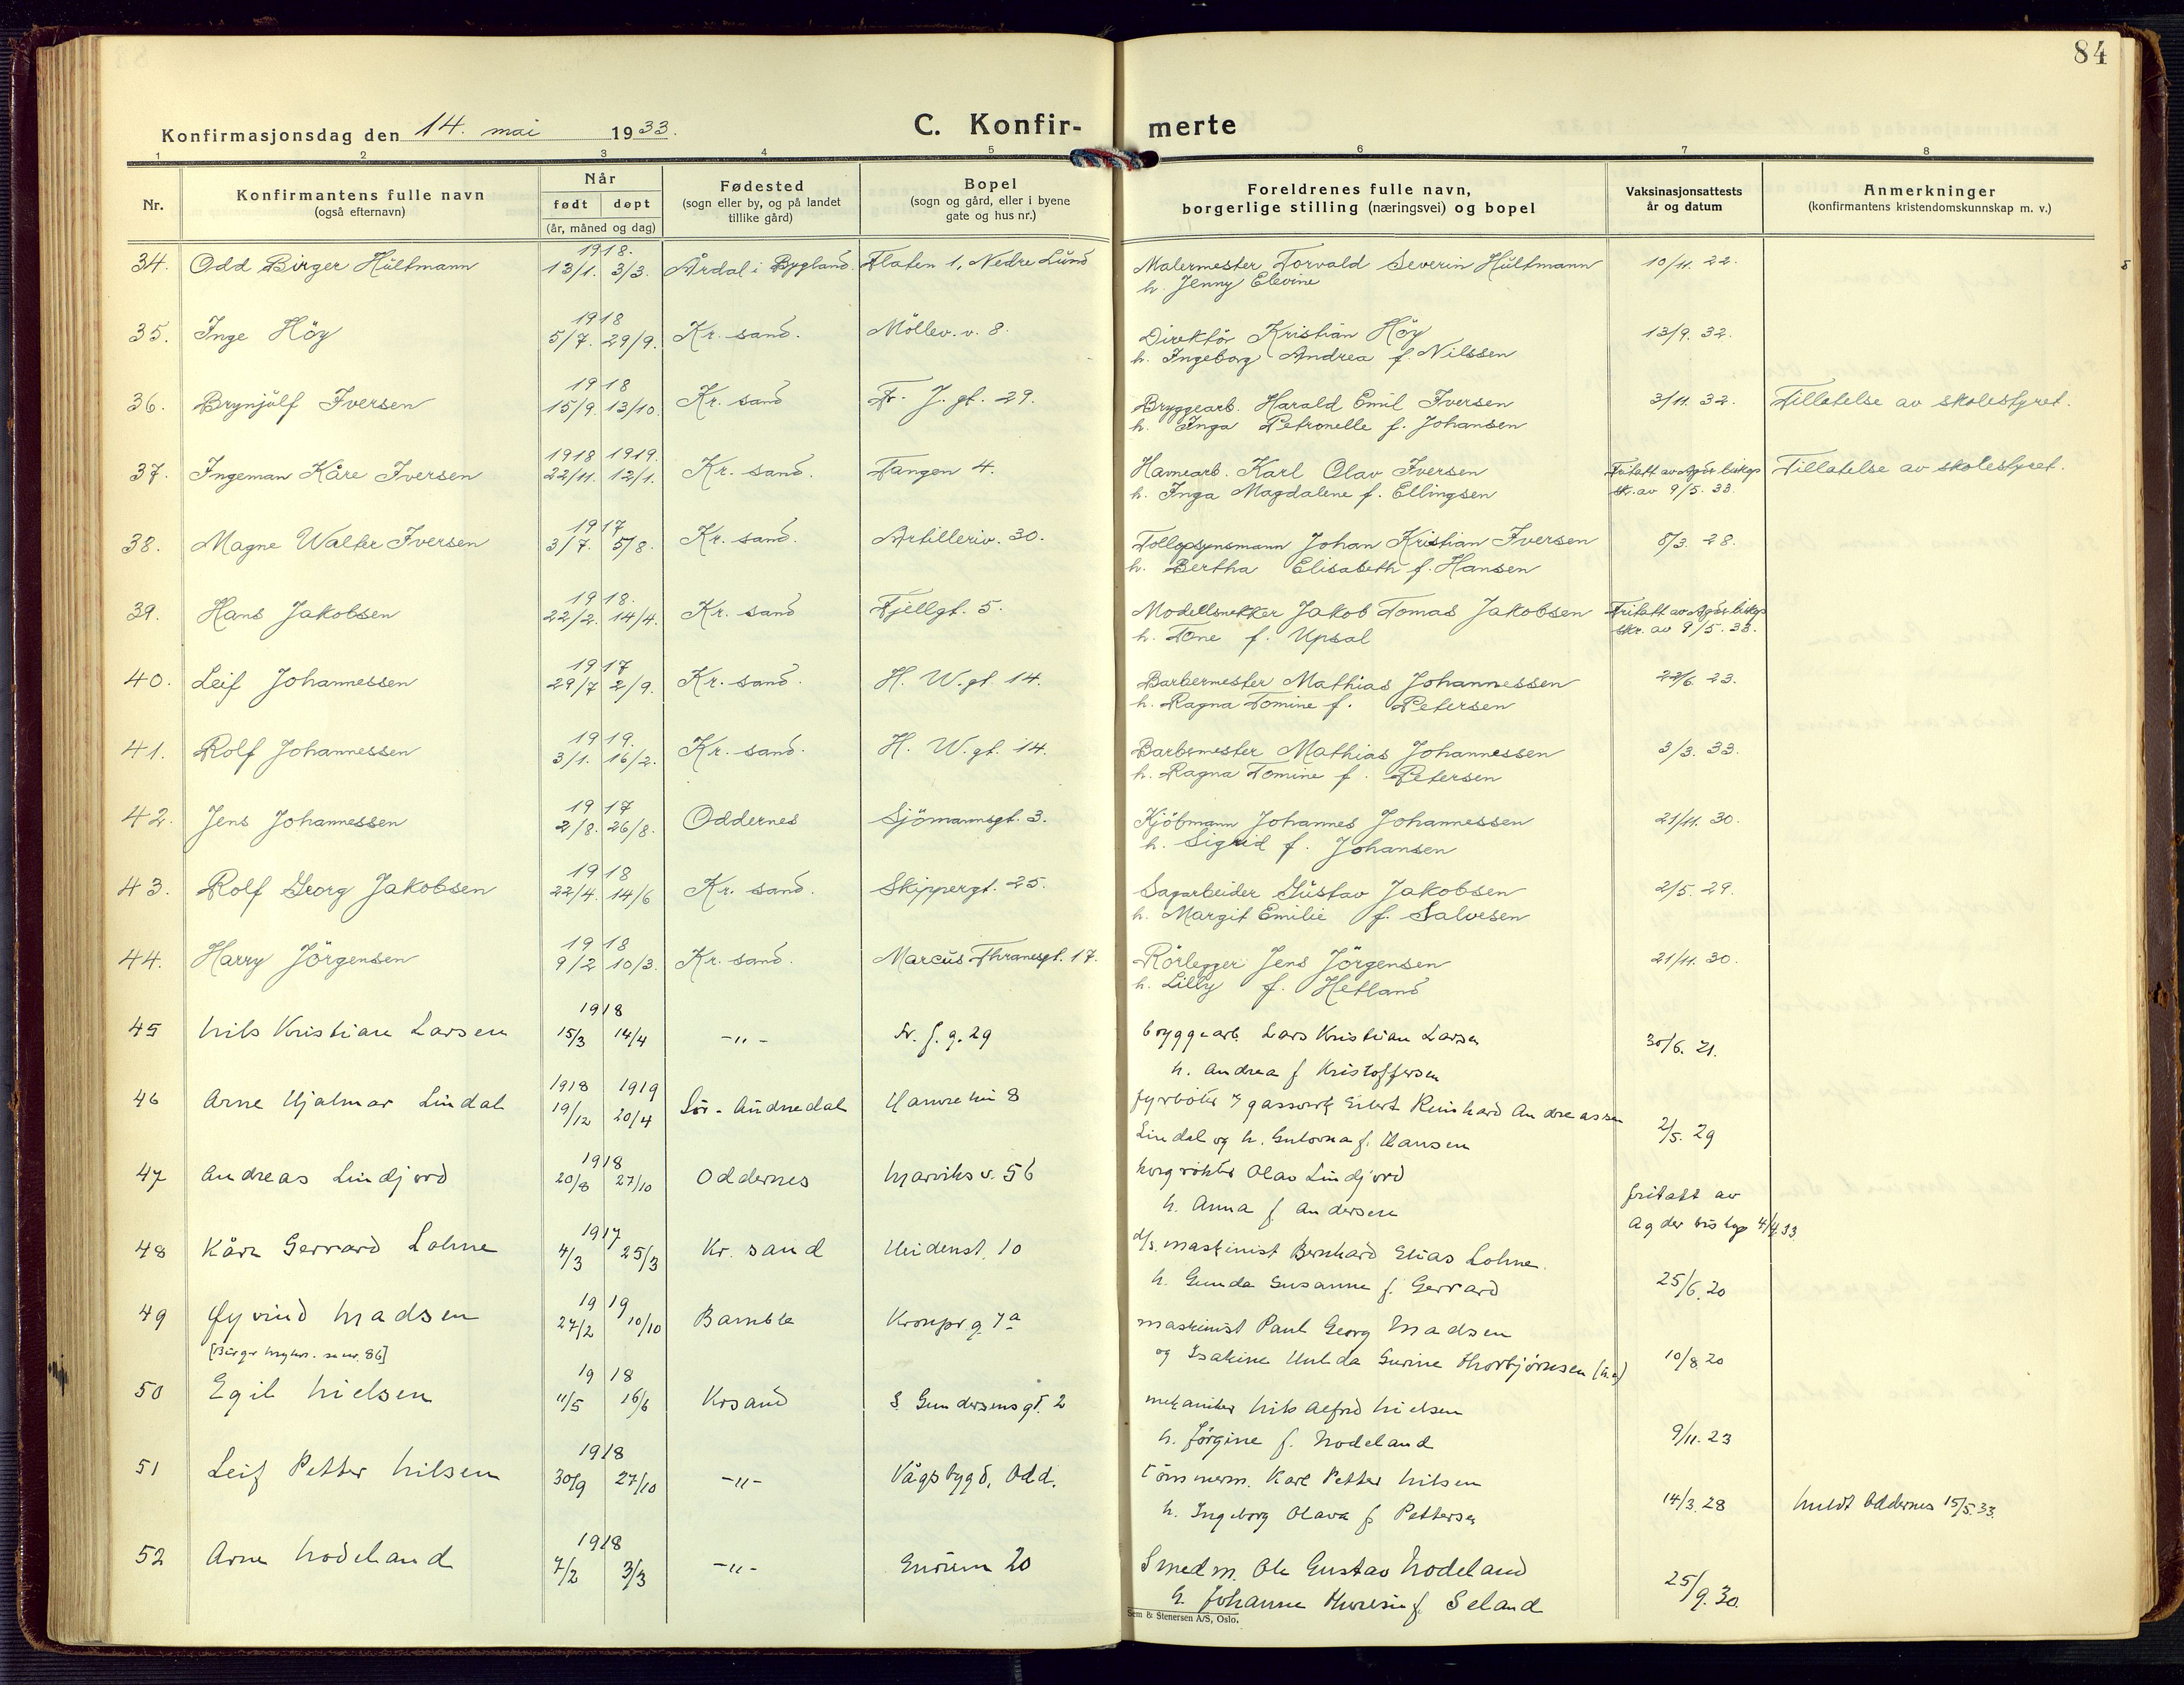 84
Konfirmasjonsdag den 14. mai 1933.
C. Konfir- merte
1 2 3 4 5 6 7 8
Nr.
Konfirmantens fulle navn
(også efternavn)
Når
født døpt
(år, måned og dag)
Fødested
(sogn eller by, og på landet
tillike gård)
Bopel
(sogn og gård, eller i byene
gate og hus nr.)
Foreldrenes fulle navn,
borgerlige stilling (næringsvei) og bopel
Vaksinasjonsattests
år og datum
Anmerkninger
(konfirmantens kristendomskunnskap m. v.)
1918.
34. Odd Birger Hultmann 13/1. 3/3. Årdal i Bygland. Flaten 1, Nedre Lund Malermester Torvald Severin Hultmann 10/11. 22.
h. Jenny Elevine
1918
35. Inge Höy 5/7. 29/9. Kr. sand. Möllev. v. 8. Direktör Kristian Höy 13/9. 32.
h. Ingeborg Andrea f. Nilssen
1918
36. Brynjulf Iversen 15/9. 13/10. Kr. sand Fr. J. gt. 29. Bryggearb. Harald Emil Iversen 3/11. 32. Tillatelse av skolestyret.
h. Inga Petronelle f. Johansen
1918 1919.
37. Ingeman Kåre Iversen 22/11. 12/1. Kr. sand. Tangen 4. Havnearb. Karl Olav Iversen Fritatt av Agder biskop Tillatelse av skolestyret.
h. Inga Magdalene f. Ellingsen skr. av 9/5. 33.
1917
38. Magne Walter Iversen 3/7. 5/8. Kr. sand. Artilleriv. 30. Tollopsynsmann Johan Kristian Iversen 8/3. 28.
h. Bertha Elisabeth f. Hansen
1918.
39. Hans Jakobsen 22/2. 14/4. Kr. sand Fjellgt. 5. Modellsnekker Jakob Tomas Jakobsen Fritatt av Agder biskop
h. Tone f. Upsal skr. av 9/5. 33.
1917
40. Leif Johannessen 29/7 2/9. Kr. sand. H. W. gt. 14. Barbermester Mathias Johannessen 22/6. 23.
h. Ragna Tomine f. Petersen
1919.
41. Rolf Johannessen 3/1. 16/2. Kr. sand. H. W. gt. 14. Barbermester Mathias Johannessen 3/3. 33.
h. Ragna Tomine f. Petersen
1917
42. Jens Johannessen 2/8. 26/8. Oddernes Sjömannsgt. 3. Kjöbmann Johannes Johannessen 21/11. 30.
h. Sigrid f. Johansen
1918
43. Rolf Georg Jakobsen 22/4. 14/6 Kr. sand. Skippergt. 25. Sagarbeider Gustav Jakobsen 2/5. 29.
h. Margit Emilie f. Salvesen
1918
44. Harry Jörgensen 9/2 10/3. Kr. sand. Marcus Thranesgt. 17. Rörlegger Jens Jörgensen 21/11. 30.
h. Lilly f. Hetland
1918
45 Nils Kristian Larsen 15/3 14/4 -"- Fr. J. g. 29 bryggearb Lars Kristian Larsen 30/6. 21.
h. Andrea f Kristoffersen
1918 1919
46 Arne Hjalmar Lindal 19/12 20/4 Sör-Audnedal 8 fyrböter Eilert Reinhard Andreassen 2/5. 29
Lindal og h. f. Hansen
1918
47 Andreas Lindjord 20/8 27/10 Oddernes Marviks v. 56 Olav Lindjord fritatt av
h. Anna f. Andersen Agder biskop 4/4.33
1917
48 Kåre Gerrard Lohne 4/3 25/3 Kr. sand Heidenst. 10 d/s. maskinist Bernhard Elias Lohne
h. Gunda Susanne f. Gerrard 25/6 20
1919
49 Øyvind Madsen 27/2 10/10 Bamble Kronpr. g 7a maskinist Paul Georg Madsen
og Isakine Hulda Gurine Thorbjørnsen 10/8 20
1918
50 Egil Nielsen 11/5 16/6 Krsand S Gundersensgt. 2 mekaniker Nils Alfred Nielsen
h. Jörgine f. Nodeland 9/11. 23
1918
51 Leif Petter Nilsen 30/9 27/10 -"- Vågsbygd, Odd. tömmerm. Karl Petter Nilsen
h. Ingeborg Olava f Pettersen 14/3. 28 meldt Oddernes 15/5.33.
1918
52 Arne Nodeland 7/2 3/3 -"- 20 Smedm. Ole Gustav Nodeland
h. Johanne f. Seland 25/9. 30.
Sem & Stenersen A/S, Oslo.